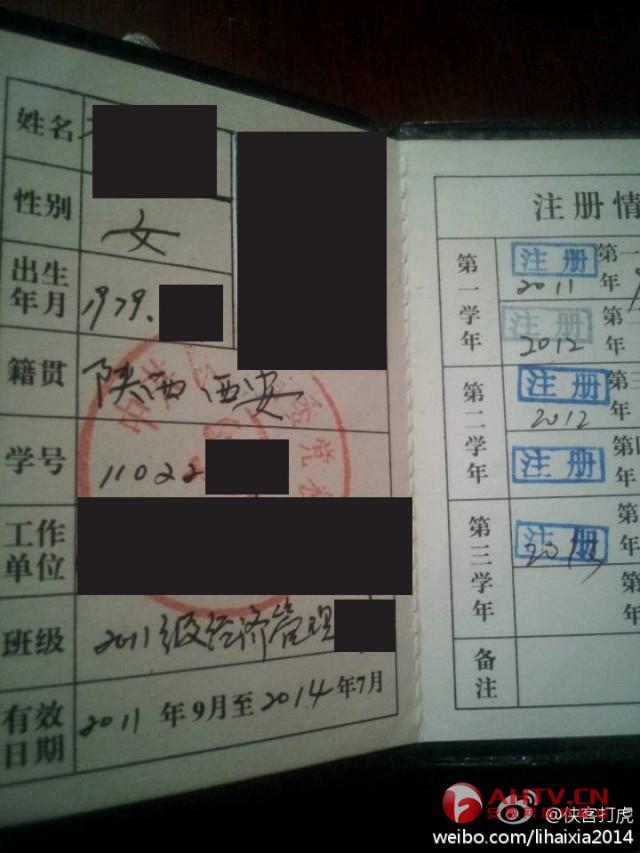 姓名
性别 女
出生年月 1979.
籍贯 陕西西安
学号 11022
工作单位
班级 2011级经济管理
有效日期 2011年9月至2014年7月
注册情
第一学年
注册 第一
2011 年9
注册 第二
2012 年
第二学年
注册 第三
2012 年
注册 第四
年
第三学年
注册 第
年
第
年
备注
AHTV.CN
@侠客打虎
weibo.com/lihaixia2014